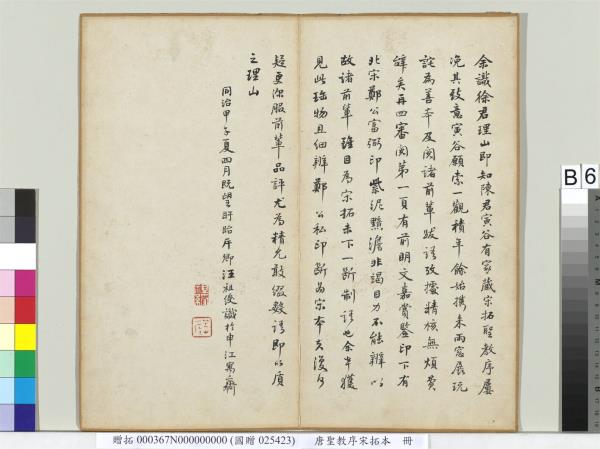 余識徐君理山即知陳君寅谷有家藏宋拓聖教序屢
浼其致意寅谷願索一觀積年餘始携来雨窓展玩
詫為善本及閱諸前輩跋語攷據精核無煩贅
辭矣再四審閱第一頁有前明文嘉賞鑒印下有
北宋鄭公富弼印紫泥黯澹非竭目力不能辨以
故諸前輩雖目為宋拓未下一斷制語也余幸獲
見此珎物且細辨鄭公私印斷為宋本夫復何
疑更深服前輩品評尤為精允敢綴數語即以質
之理山
同治甲子夏四月既望盱眙序卿汪祖綬識於申江寓齋
B 6
贈拓 000367N000000000 (國贈 025423) 唐聖教序宋拓本 冊